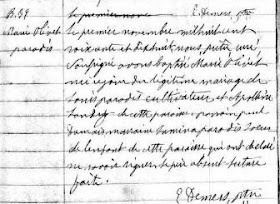 B.39
Marie Olivet
parodis
le premier nov E. Demers, ptre
Le premier novembre mil huit cent
soixante et dix huit nous, prêtre
Soussigné avons baptisé Marie Olivet
née du légitime mariage de
Louis parodis cultivateur et
de cette paroisse parrain
marraine parodis soeur
de l'enfant de cette paroisse qui ont déclaré
ne savoir signer, le père absent lecture
faite.
E. Demers, ptre